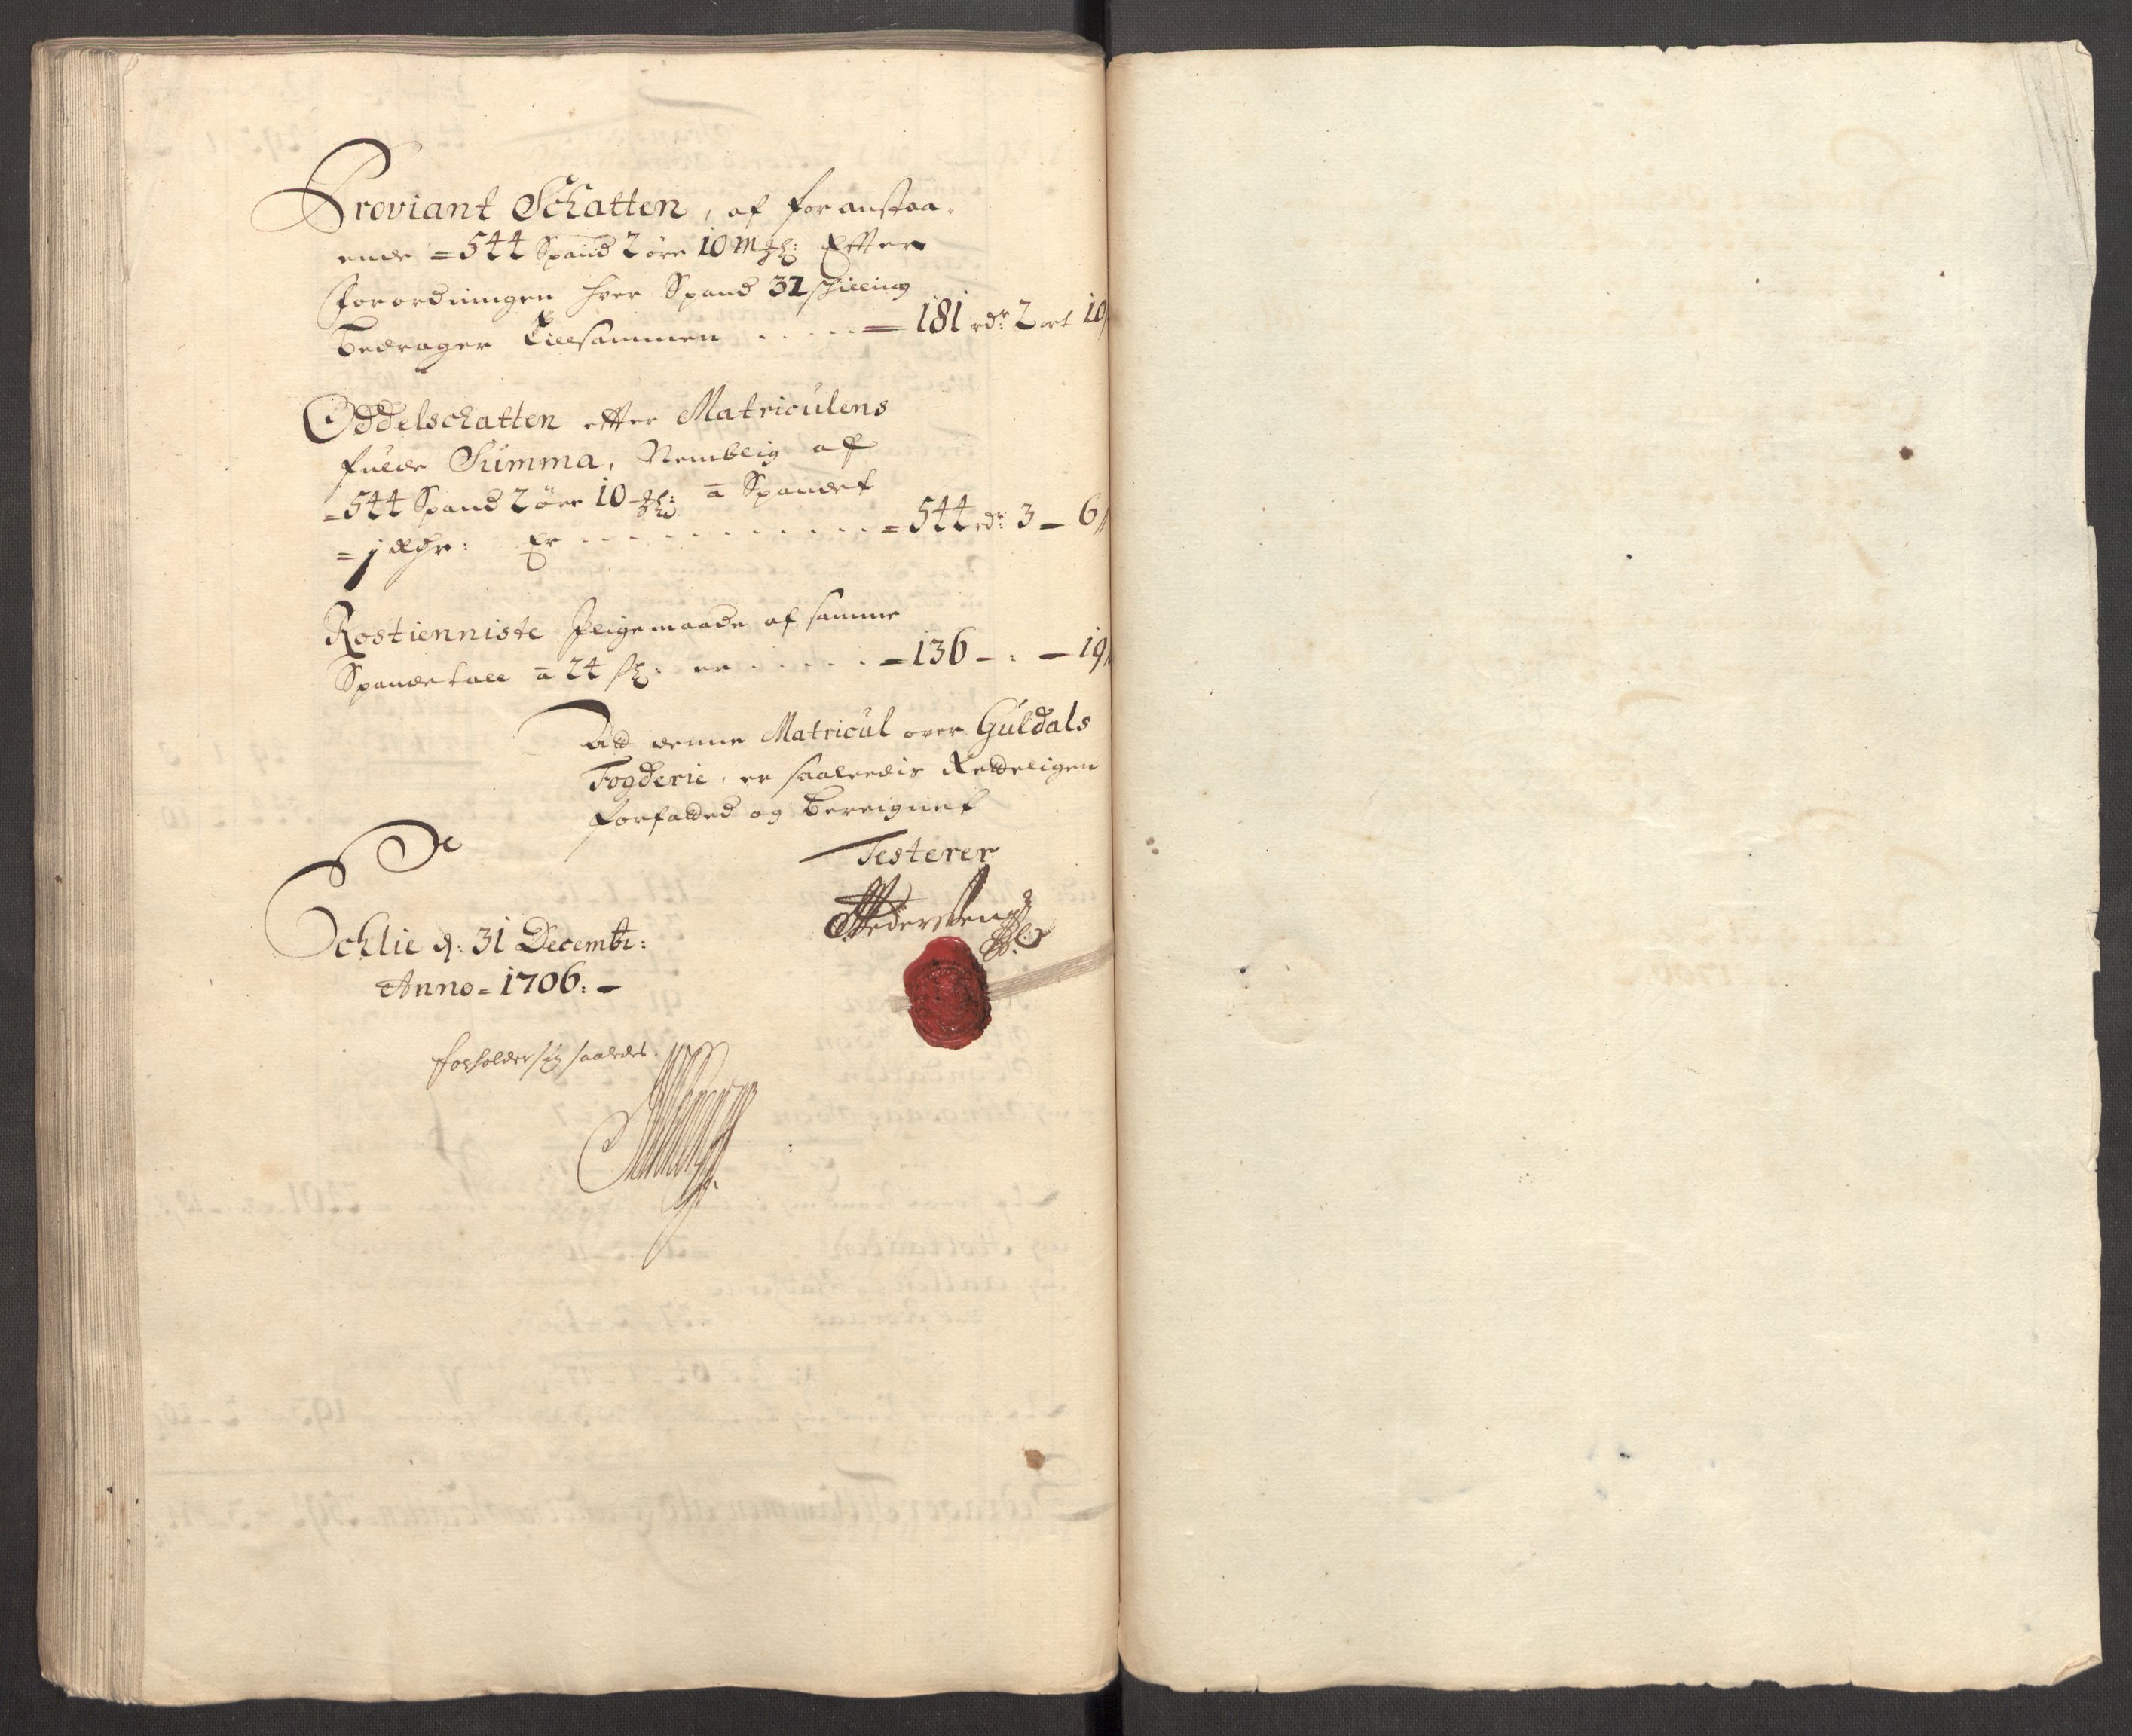 Proviant Schatten, af foranstaa-
ende = 544 Spand 2 øre 10 m&#x207a;l: Efter
forordningen hver Spand 32 schilling
bedrager Tillsammen . . . . = 181 rdr 2 ort 10
Oddelschatten efter Matriculens
fulde Summa, Nemblig af
= 544 Spand 2 øre 10 ā Spandet
= 1 Rdr: Er . . . . . . . . . . = 544 rdr: 3 – 6
Rostienniste Jligemaade af samme
Spandetall ā 24 sk: er . . . . . = 136 – : – 19
At denne Matricul over Guldals
Fogderie, er saaledis Retteligen
forfatted og bereignet
Testerer
Schlie d: 31 Decembr:
Anno = 1706. –
forholder sig saaledes.